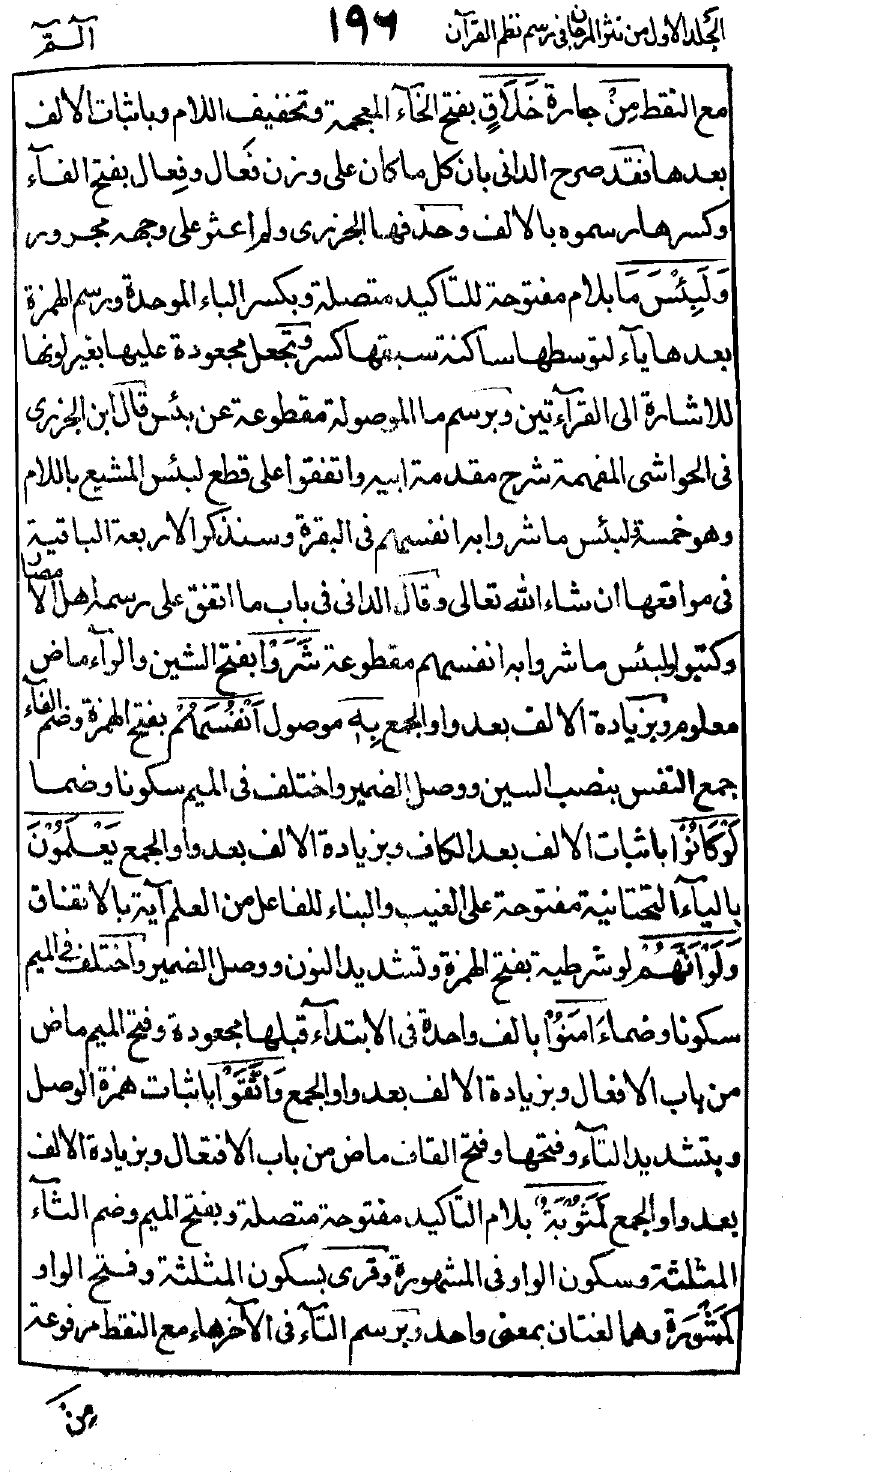 الجلد الاول من نثر المرجان فى رسم نظم القرآن ١٩٦ الٓمّٓ
مع النقط مِنْ جارة خَلَاقٍ بفتح الخآء المعجمة وتخفيف اللام وباثبات الالف
بعدها فقد صرح الدانى بان كل ما كان على وزن فَعال وفِعال بفتح الفآء
وكسرها رسموه بالالف وحذفها الجزرى ولم اعثر على وجهه مجرور
وَلَبِئْسَ مَا بلام مفتوحة للتاكيد متصلة وبكسر الباء الموحدة وبرسم الهمزة
بعدها يآء لتوسطها ساكنة سبقتها كسرة وتجعل مجعودة عليها بغير لونها
للاشارة الى القرآءتين وبرسم ما الموصولة مقطوعة عن بئس قال ابن الجزرى
فى الحواشى المفهمة شرح مقدمة ابيه واتفقوا على قطع لبئس المشيع باللام
وهو خمسة لبئس ما شروا به انفسهم فى البقرة وسنذكر الاربعة الباقية
فى مواقعها ان شاء الله تعالى وقال الدانى فى باب ما اتفق على رسمه اهل الامصار
وكتبوا ولبئس ما شروا به انفسهم مقطوعة شَرَوْا بفتح الشين والرآء ماض
معلوم وبزيادة الالف بعد واو الجمع بِهٖ موصول اَنْفُسَهُمْ بفتح الهمزة وضم الفآء
جمع النفس بنصب السين ووصل الضمير واختلف فى الميم سكونا وضما
لَوْ كَانُوْا باثبات الالف بعد الكاف وبزيادة الالف بعد واو الجمع يَعْلَمُوْنَ
باليآء التحتانية مفتوحة على الغيب والبناء للفاعل من العلم آية بالاتفاق
وَلَوْ اَنَّهُمْ لو شرطية بفتح الهمزة وتشديد النون ووصل الضمير واختلف فى الميم
سكونا وضماءَ امَنُوْا بالف واحدة فى الابتدآء قبلها مجعودة وفتح الميم ماض
من باب الافعال وبزيادة الالف بعد واو الجمع وَاتَّقَوْا باثبات همزة الوصل
وبتشديد التآء وفتحها وفتح القاف ماض من باب الافتعال وبزيادة الالف
بعد واو الجمع لَمَثُوْبَةٌ بلام التاكيد مفتوحة متصلة وبفتح الميم وضم الثآء
المثلثة وسكون الواو فى المشهورة وقرى بسكون المثلثة وفتح الواو
كَمَشْوَرَة وهما لغتان بمعنى واحد وبرسم التآء فى الآخر هاء مع النقط مرفوعة
مِنْ